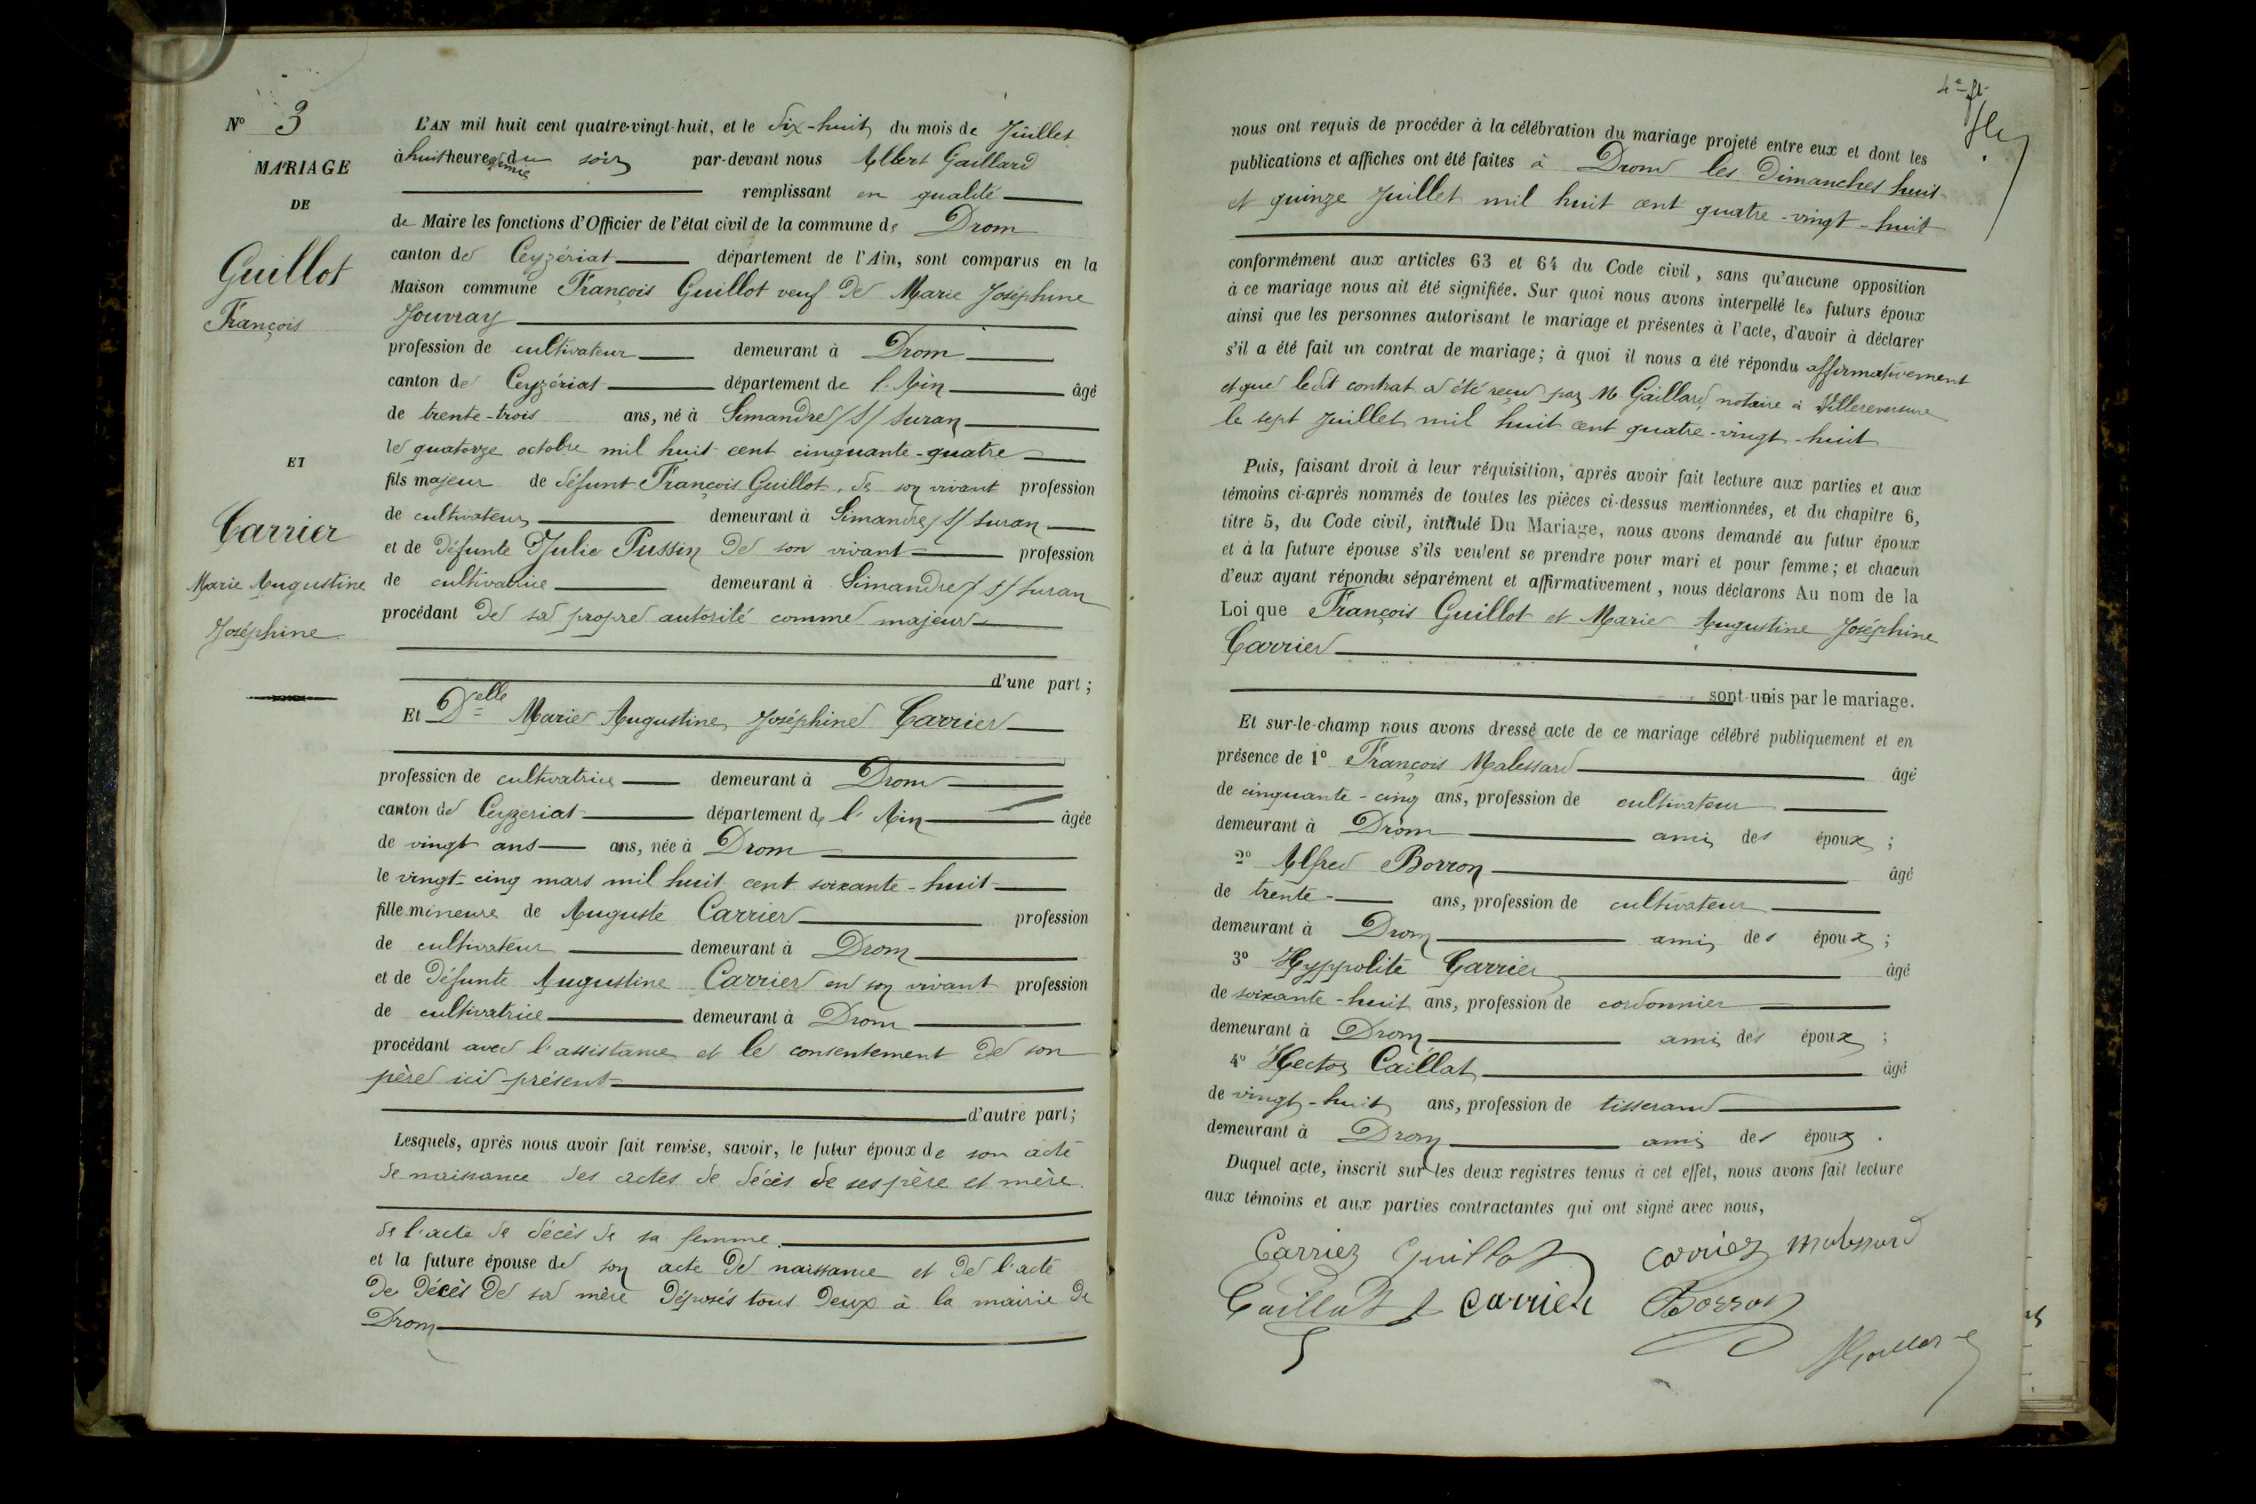 N° 3
MARIAGE
DE
Guillot
François
ET
Carrier
Marie Augustine
Joséphine
L'AN mil huit cent quatre-vingt-huit, et le dix-huit du mois de Juillet
à huit heures du soir par-devant nous Albert Gaillard
remplissant en qualité
de Maire les fonctions d'Officier de l'état civil de la commune de Drom
canton de Ceyzériat département de l'Ain, sont comparus en la
Maison commune François Guillot veuf de Marie Joséphine
Jouvray
profession de cultivateur demeurant à Drom
canton de Ceyzériat département de l'Ain âgé
de trente-trois ans, né à Simandre /S/ Suran
le quatorze octobre mil huit cent cinquante-quatre
fils majeur de défunt François Guillot, de son vivant profession
de cultivateur demeurant à Simandre /S/ Suran
et de défunte Julie Pussin de son vivant profession
de cultivatrice demeurant à Simandre /S/ Suran
procédant de sa propre autorité comme majeur
d'une part ;
Et Delle Marie Augustine Joséphine Carrier
profession de cultivatrice demeurant à Drom
canton de Ceyzeriat département de l'Ain âgée
de vingt ans ans, née à Drom
le vingt-cinq mars mil huit cent soixante-huit
fille mineure de Auguste Carrier profession
de cultivateur demeurant à Drom
et de défunte Augustine Carrier en son vivant profession
de cultivatrice demeurant à Drom
procédant avec l'assistance et le consentement de son
père ici présent
d'autre part ;
Lesquels, après nous avoir fait remise, savoir, le futur époux de son acte
de naissance des actes de décès de ses père et mère.
de l'acte de décès de sa femme.
et la future épouse de son acte de naissance et de l'acte
de décès de sa mère déposés tous deux à la mairie de
Drom
4e ft
nous ont requis de procéder à la célébration du mariage projeté entre eux et dont les
publications et affiches ont été faites à Drom les Dimanches huit
et quinze Juillet mil huit cent quatre-vingt-huit
conformément aux articles 63 et 64 du Code civil, sans qu'aucune opposition
à ce mariage nous ait été signifiée. Sur quoi nous avons interpellé les futurs époux
ainsi que les personnes autorisant le mariage et présentes à l'acte, d'avoir à déclarer
s'il a été fait un contrat de mariage ; à quoi il nous a été répondu affirmativement
et que ledit contrat a été reçu par Me Gaillard notaire à Villereversure
le sept juillet mil huit cent quatre-vingt-huit
Puis, faisant droit à leur réquisition, après avoir fait lecture aux parties et aux
témoins ci-après nommés de toutes les pièces ci-dessus mentionnées, et du chapitre 6,
titre 5, du Code civil, intitulé Du Mariage, nous avons demandé au futur époux
et à la future épouse s'ils veulent se prendre pour mari et pour femme ; et chacun
d'eux ayant répondu séparément et affirmativement, nous déclarons Au nom de la
Loi que François Guillot et Marie Augustine Joséphine
Carrier
sont unis par le mariage.
Et sur-le-champ nous avons dressé acte de ce mariage célébré publiquement et en
présence de 1° François Malessard âgé
de cinquante-cinq ans, profession de cultivateur
demeurant à Drom ami des époux ;
2° Alfred Borron âgé
de trente ans, profession de cultivateur
demeurant à Drom ami des époux ;
3° Hyppolite Carrier âgé
de soixante-huit ans, profession de cordonnier
demeurant à Drom ami des époux ;
4° Hector Caillat âgé
de vingt-huit ans, profession de tisserand
demeurant à Drom ami des époux.
Duquel acte, inscrit sur les deux registres tenus à cet effet, nous avons fait lecture
aux témoins et aux parties contractantes qui ont signé avec nous,
Carrier Guillot carrier malessard
Caillat carrier Borron
AGaillard